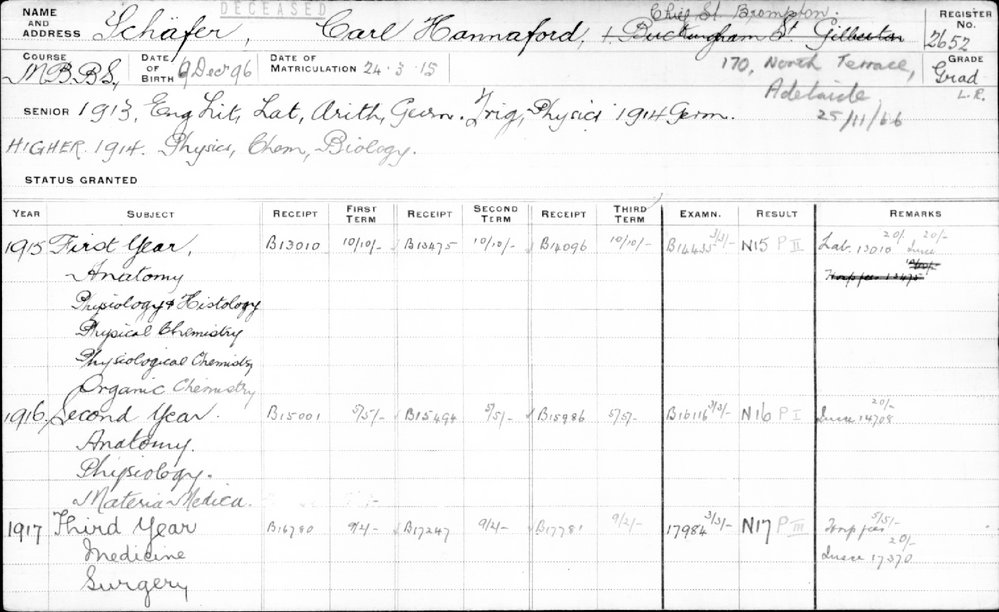 DECEASED
NAME AND ADDRESS Schäfer, Carl Hannaford, Chief St. Brompton.
Buckingham St. Gilberton
REGISTER No. 2652
COURSE M.B.B.S. DATE OF BIRTH 9 Decr 96 DATE OF MATRICULATION 24·3·15 170, North Terrace, GRADE Grad
Adelaide L.R.
SENIOR 1913, Eng Lit, Lat, Arith, Geom. Trig, Physics 1914 Germ. 25/11/66
HIGHER 1914. Physics, Chem, Biology.
STATUS GRANTED
YEAR SUBJECT RECEIPT FIRST TERM RECEIPT SECOND TERM RECEIPT THIRD TERM EXAMN. RESULT REMARKS
1915 First Year, B13010 10/10/- B13475 10/10/- B14096 10/10/- B14435 3/3/- N15 P II Lab. 13010 20/- 20/-
Anatomy
Physiology & Histology
Physical Chemistry
Physiological Chemistry
Organic Chemistry
1916, Second Year. B15001 5/5/- B15494 5/5/- B15986 5/5/- B16116 3/3/- N16 P I 14708 20/-
Anatomy.
Physiology.
Materia Medica.
1917 Third Year B16780 9/2/- B17247 9/2/- B17781 9/2/- 17984 3/3/- N17 P III Hosp fees 5/5/-
Medicine 20/-
Surgery 17370